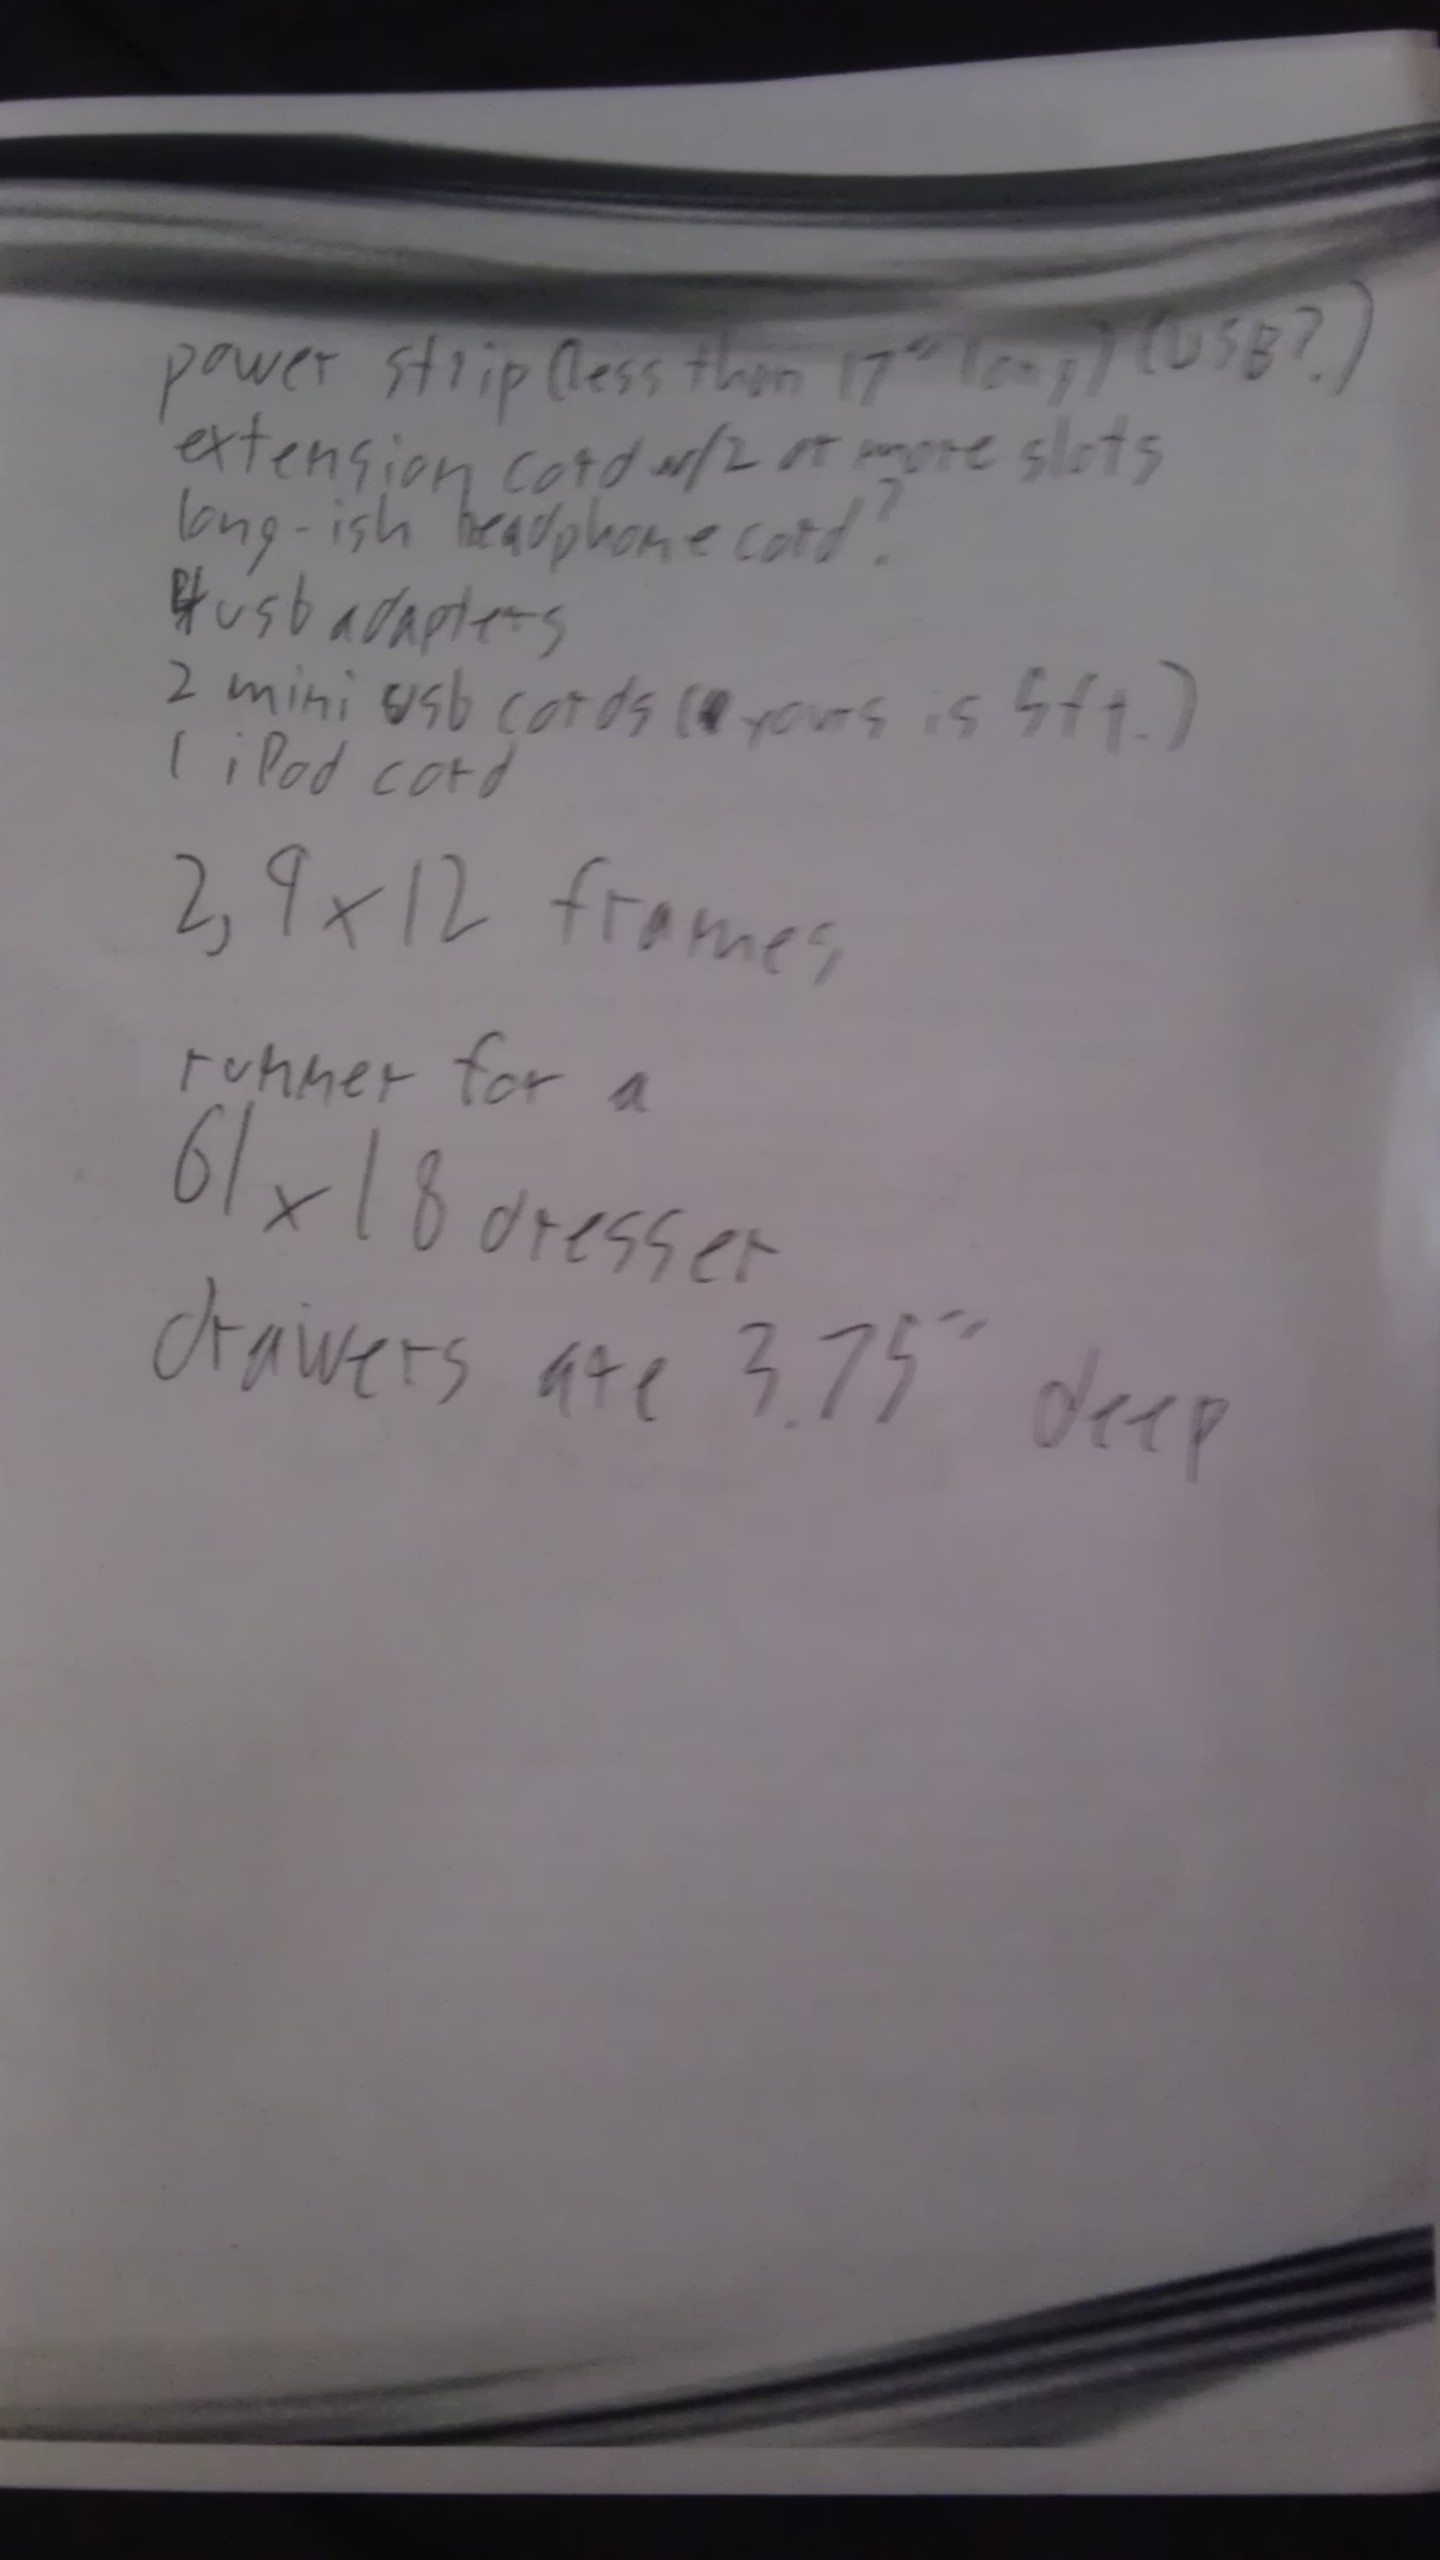 power strip (less than 17" long) (USB?)
extension cord w/2 or more slots
long-ish headphone cord?
4 usb adapters
2 mini usb cords (yours is 5ft.)
1 iPod cord
2, 9x12 frames
runner for a
61x18 dresser
drawers are 3.75" deep